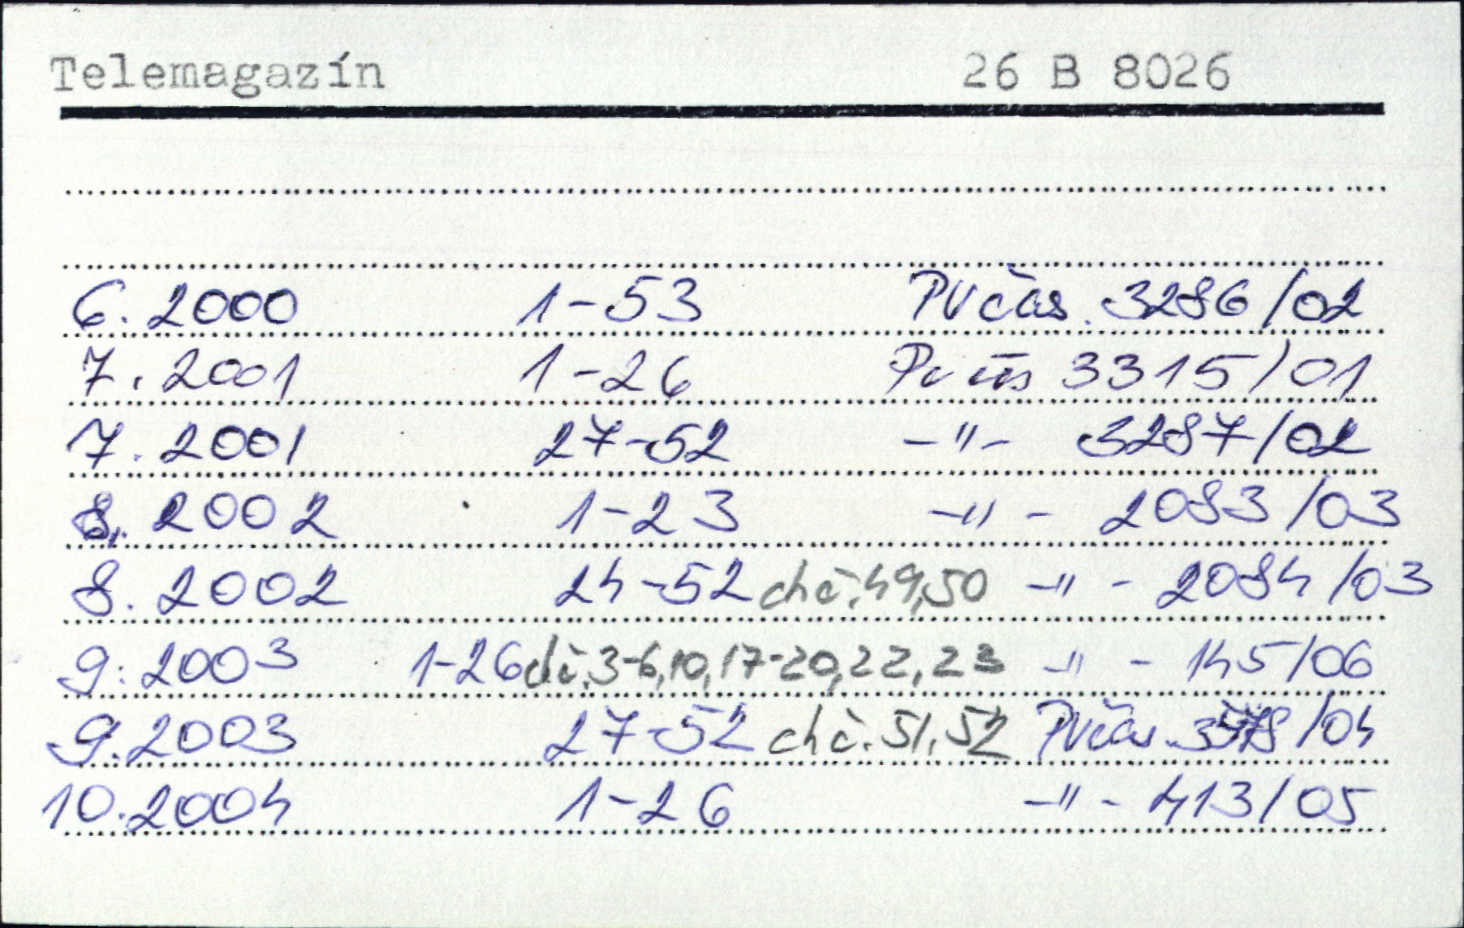 Telemagazín 26 B 8026
6. 2000 1-53 PV čas. 3286/02
7. 2001 1-26 Pv čas 3315/01
7. 2001 27-52 -"- 3287/02
8. 2002 1-23 -"- 2083/03
8. 2002 24-52 ch č. 49,50 -"- 2084/03
9. 2003 1-26 ch č. 3-6,10,17-20,22,23 -"- 145/06
9. 2003 27-52 ch č. 51,52 PV čas. /04
10. 2004 1-26 -"- 413/05